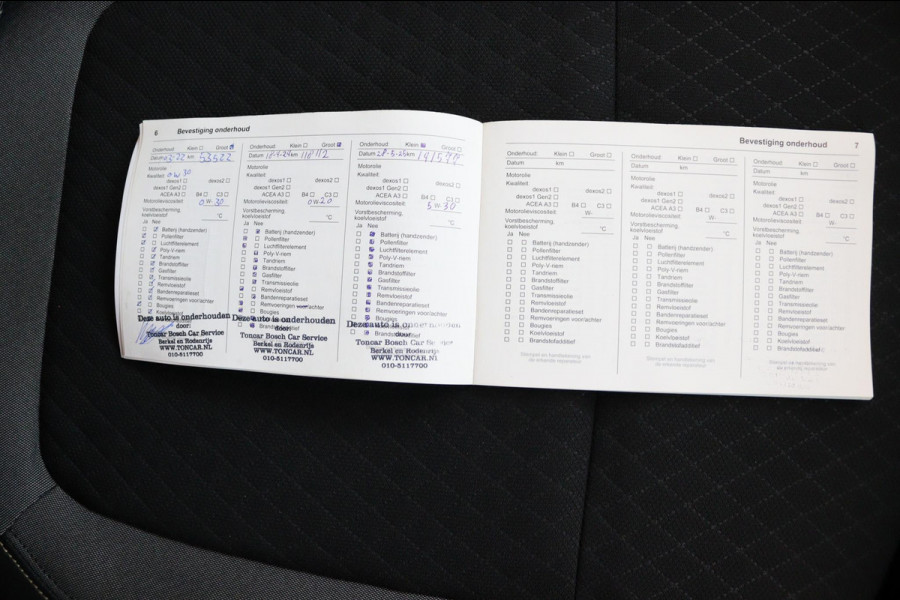 6 Bevestiging onderhoud
Onderhoud: Klein Groot
Datum 3-22 km 53522
Motorolie 0W30
Kwaliteit:
dexos1 dexos2
dexos1 Gen2
ACEA A3 B4 C3
Motorolieviscositeit: 0W-30
Vorstbescherming, koelvloeistof °C
Ja Nee
Batterij (handzender)
Pollenfilter
Luchtfilterelement
Poly-V-riem
Tandriem
Brandstoffilter
Gasfilter
Transmissieolie
Remvloeistof
Bandenreparatieset
Remvoeringen voor/achter
Bougies
Deze auto is onderhouden
door:
Toncar Bosch Car Service
Berkel en Rodenrijs
WWW.TONCAR.NL
010-5117700
Onderhoud: Klein Groot
Datum km 111112
Motorolie
Kwaliteit:
dexos1 dexos2
dexos1 Gen2
ACEA A3 B4 C3
Motorolieviscositeit: 0W-20
Vorstbescherming, koelvloeistof °C
Ja Nee
Batterij (handzender)
Pollenfilter
Luchtfilterelement
Poly-V-riem
Tandriem
Brandstoffilter
Gasfilter
Transmissieolie
Remvloeistof
Bandenreparatieset
Remvoeringen voor/achter
Bougies
Deze auto is onderhouden
door:
Toncar Bosch Car Service
Berkel en Rodenrijs
WWW.TONCAR.NL
010-5117700
Onderhoud: Klein Groot
Datum 28-5-25 km
Motorolie
Kwaliteit:
dexos1 dexos2
dexos1 Gen2
ACEA A3 B4 C3
Motorolieviscositeit: 5W-30
Vorstbescherming, koelvloeistof °C
Ja Nee
Batterij (handzender)
Pollenfilter
Luchtfilterelement
Poly-V-riem
Tandriem
Brandstoffilter
Gasfilter
Transmissieolie
Remvloeistof
Bandenreparatieset
Remvoeringen voor/achter
Bougies
Deze auto is onderhouden
door:
Toncar Bosch Car Service
Berkel en Rodenrijs
WWW.TONCAR.NL
010-5117700
Bevestiging onderhoud 7
Onderhoud: Klein Groot
Datum km
Motorolie
Kwaliteit:
dexos1 dexos2
dexos1 Gen2
ACEA A3 B4 C3
Motorolieviscositeit: W-
Vorstbescherming, koelvloeistof °C
Ja Nee
Batterij (handzender)
Pollenfilter
Luchtfilterelement
Poly-V-riem
Tandriem
Brandstoffilter
Gasfilter
Transmissieolie
Remvloeistof
Bandenreparatieset
Remvoeringen voor/achter
Bougies
Koelvloeistof
Brandstofadditief
Stempel en handtekening van
de erkende reparateur
Onderhoud: Klein Groot
Datum km
Motorolie
Kwaliteit:
dexos1 dexos2
dexos1 Gen2
ACEA A3 B4 C3
Motorolieviscositeit: W-
Vorstbescherming, koelvloeistof °C
Ja Nee
Batterij (handzender)
Pollenfilter
Luchtfilterelement
Poly-V-riem
Tandriem
Brandstoffilter
Gasfilter
Transmissieolie
Remvloeistof
Bandenreparatieset
Remvoeringen voor/achter
Bougies
Koelvloeistof
Brandstofadditief
Stempel en handtekening van
de erkende reparateur
Onderhoud: Klein Groot
Datum km
Motorolie
Kwaliteit:
dexos1 dexos2
dexos1 Gen2
ACEA A3 B4 C3
Motorolieviscositeit: W-
Vorstbescherming, koelvloeistof °C
Ja Nee
Batterij (handzender)
Pollenfilter
Luchtfilterelement
Poly-V-riem
Tandriem
Brandstoffilter
Gasfilter
Transmissieolie
Remvloeistof
Bandenreparatieset
Remvoeringen voor/achter
Bougies
Koelvloeistof
Brandstofadditief
Stempel en handtekening van
de erkende reparateur